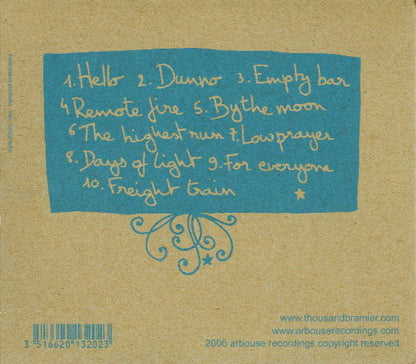 1. Hello 2. Dunno 3. Empty bar
4 Remote fire 5. By the moon
6 The highest run 7. Low prayer
8. Days of light 9. For everyone
10. Freight train
www.thousandbramier.com
www.arbouserecordings.com
2006 arbouse recordings copyright reserved
3 516620 132023